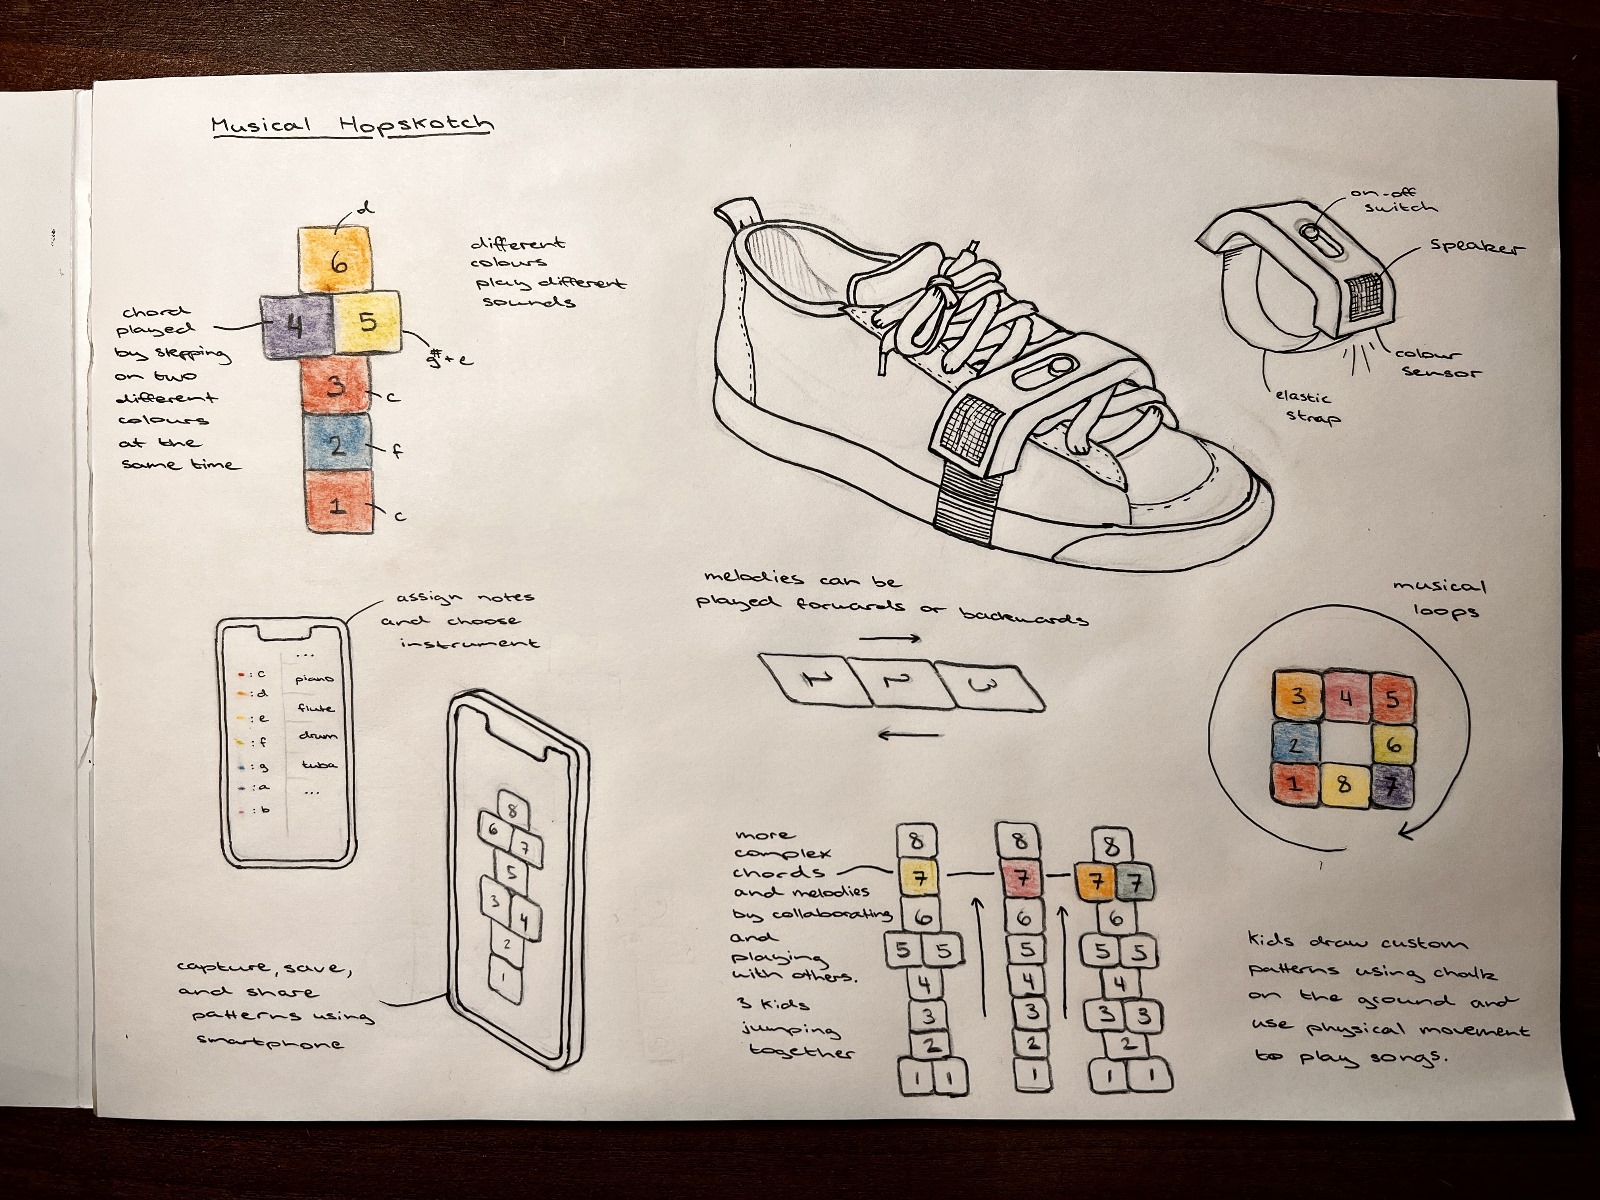 Musical Hopskotch
d
6
4
5
g#+e
3
c
2
f
1
c
chord
played
by stepping
on two
different
colours
at the
same time
different
colours
play different
sounds
on-off
switch
speaker
colour
sensor
elastic
strap
assign notes
and choose
instrument
: c
: d
: e
: f
: g
: a
: b
...
piano
flute
drum
tuba
...
8
6
7
5
3
4
2
1
capture, save,
and share
patterns using
smartphone
melodies can be
played forwards or backwards
1 2 3
musical
loops
3 4 5
2 6
1 8 7
more
complex
chords
and melodies
by collaborating
and
playing
with others.
3 kids
jumping
together
8
7
6
5 5
4
3
2
1 1
8
7
6
5
4
3
2
1
8
7 7
6
5 5
4
3 3
2
1 1
kids draw custom
patterns using chalk
on the ground and
use physical movement
to play songs.